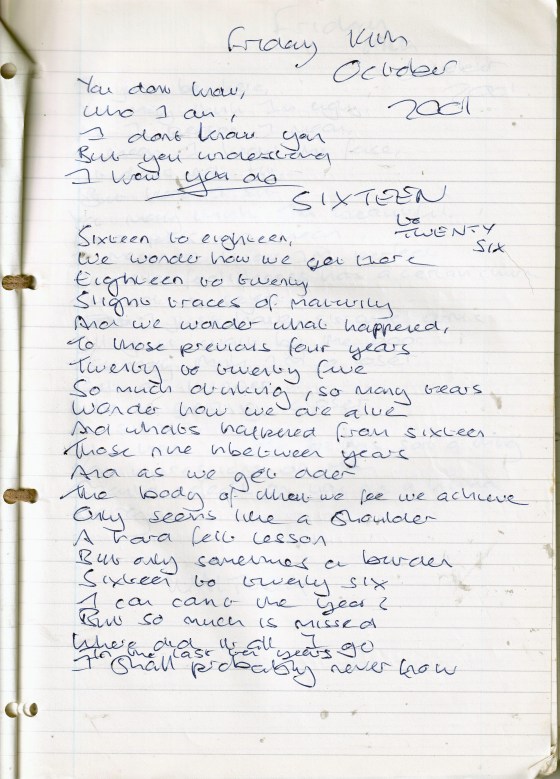 Friday
October
2001
You dont know,
Who I am,
I dont know you
But you understand
I know you do
SIXTEEN
to
TWENTY
SIX
Sixteen to eighteen,
We wonder how we got there
Eighteen to twenty
Slight traces of maturity
And we wonder what happened,
To those previous four years
Twenty to twenty five
So much drinking, so many tears
Wonder how we are alive
And whats happened from sixteen
Those nine inbetween years
And as we get older
The body of what we we achieve
Only seems like a shoulder
A hard felt lesson
But only sometimes a burden
Sixteen to twenty six
I can the years
But so much is missed
Where did it all go
In the last ten years
I shall probably never know